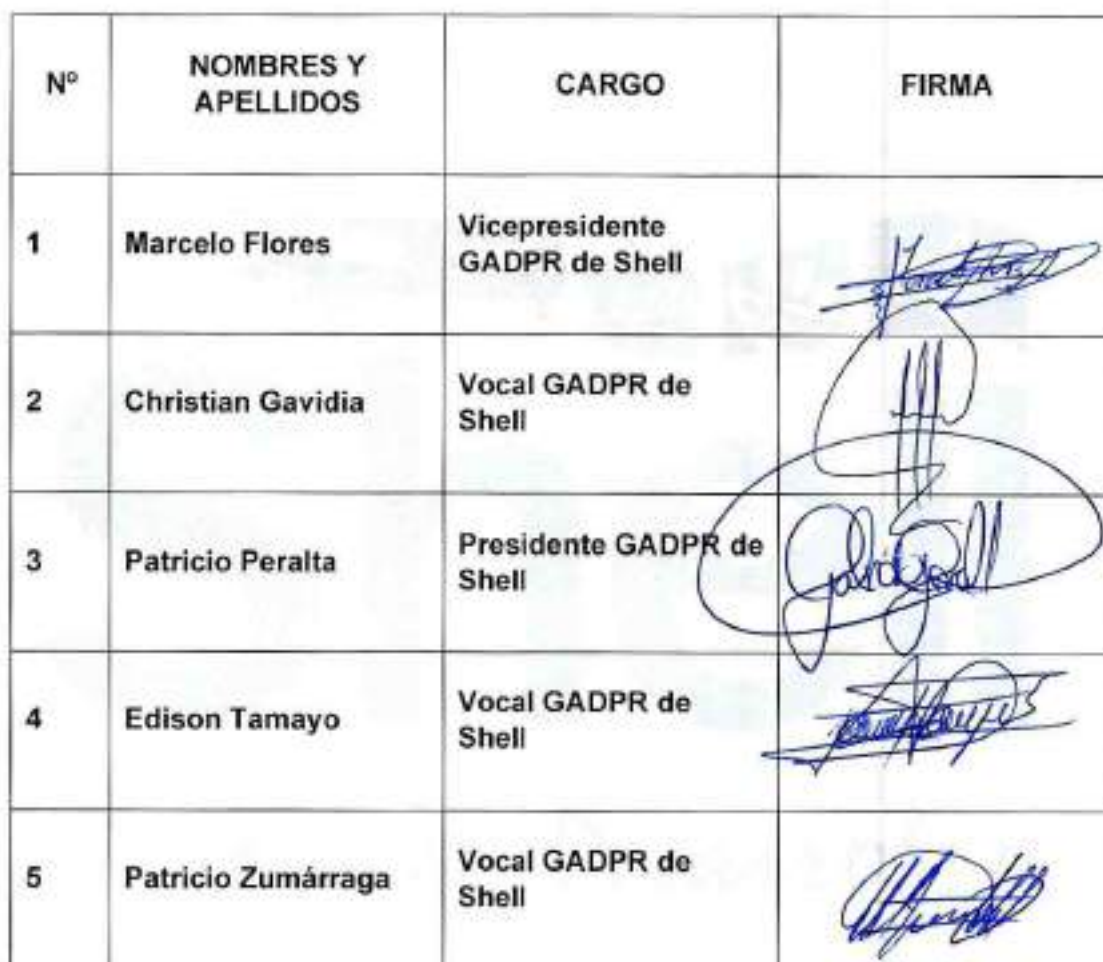 Nº
NOMBRES Y
APELLIDOS
CARGO
FIRMA
1
Marcelo Flores
Vicepresidente
GADPR de Shell
2
Christian Gavidia
Vocal GADPR de
Shell
3
Patricio Peralta
Presidente GADPR de
Shell
4
Edison Tamayo
Vocal GADPR de
Shell
5
Patricio Zumárraga
Vocal GADPR de
Shell